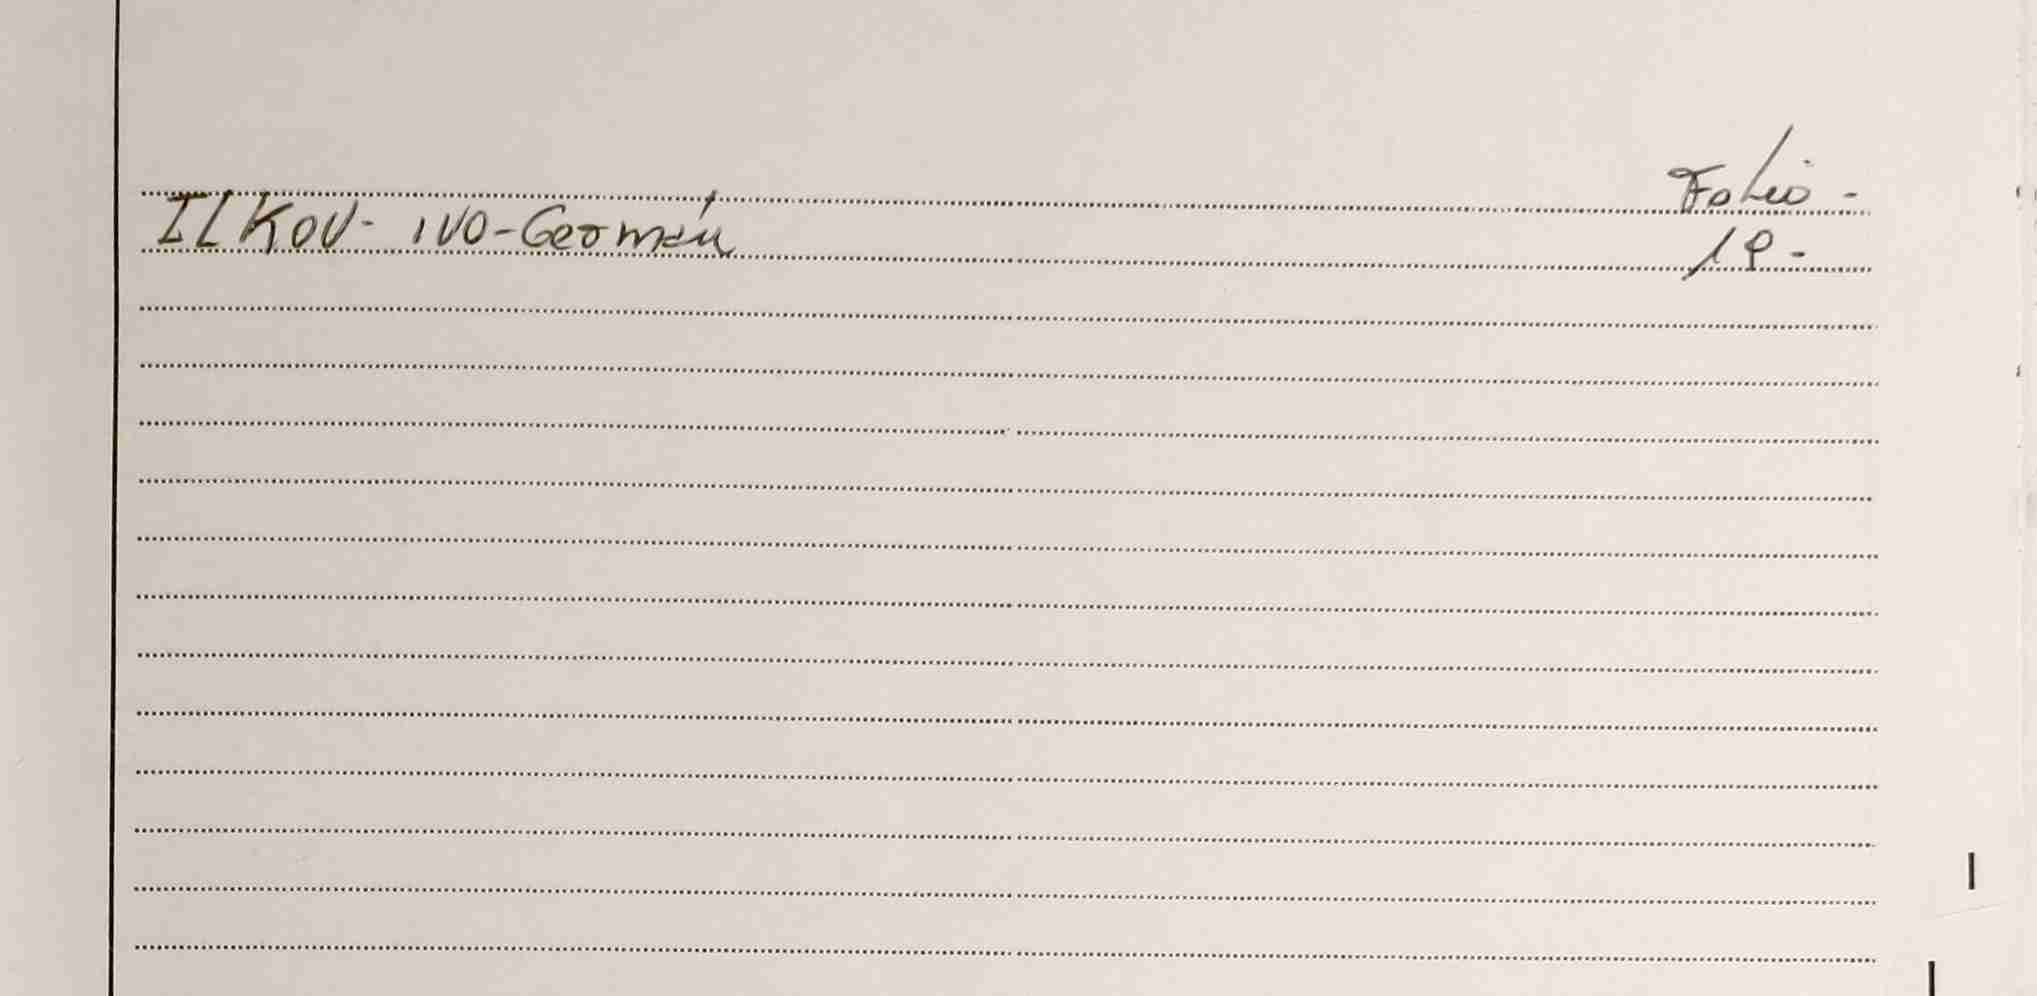 Folio -
ILKOV - IVO - Germán
19 -